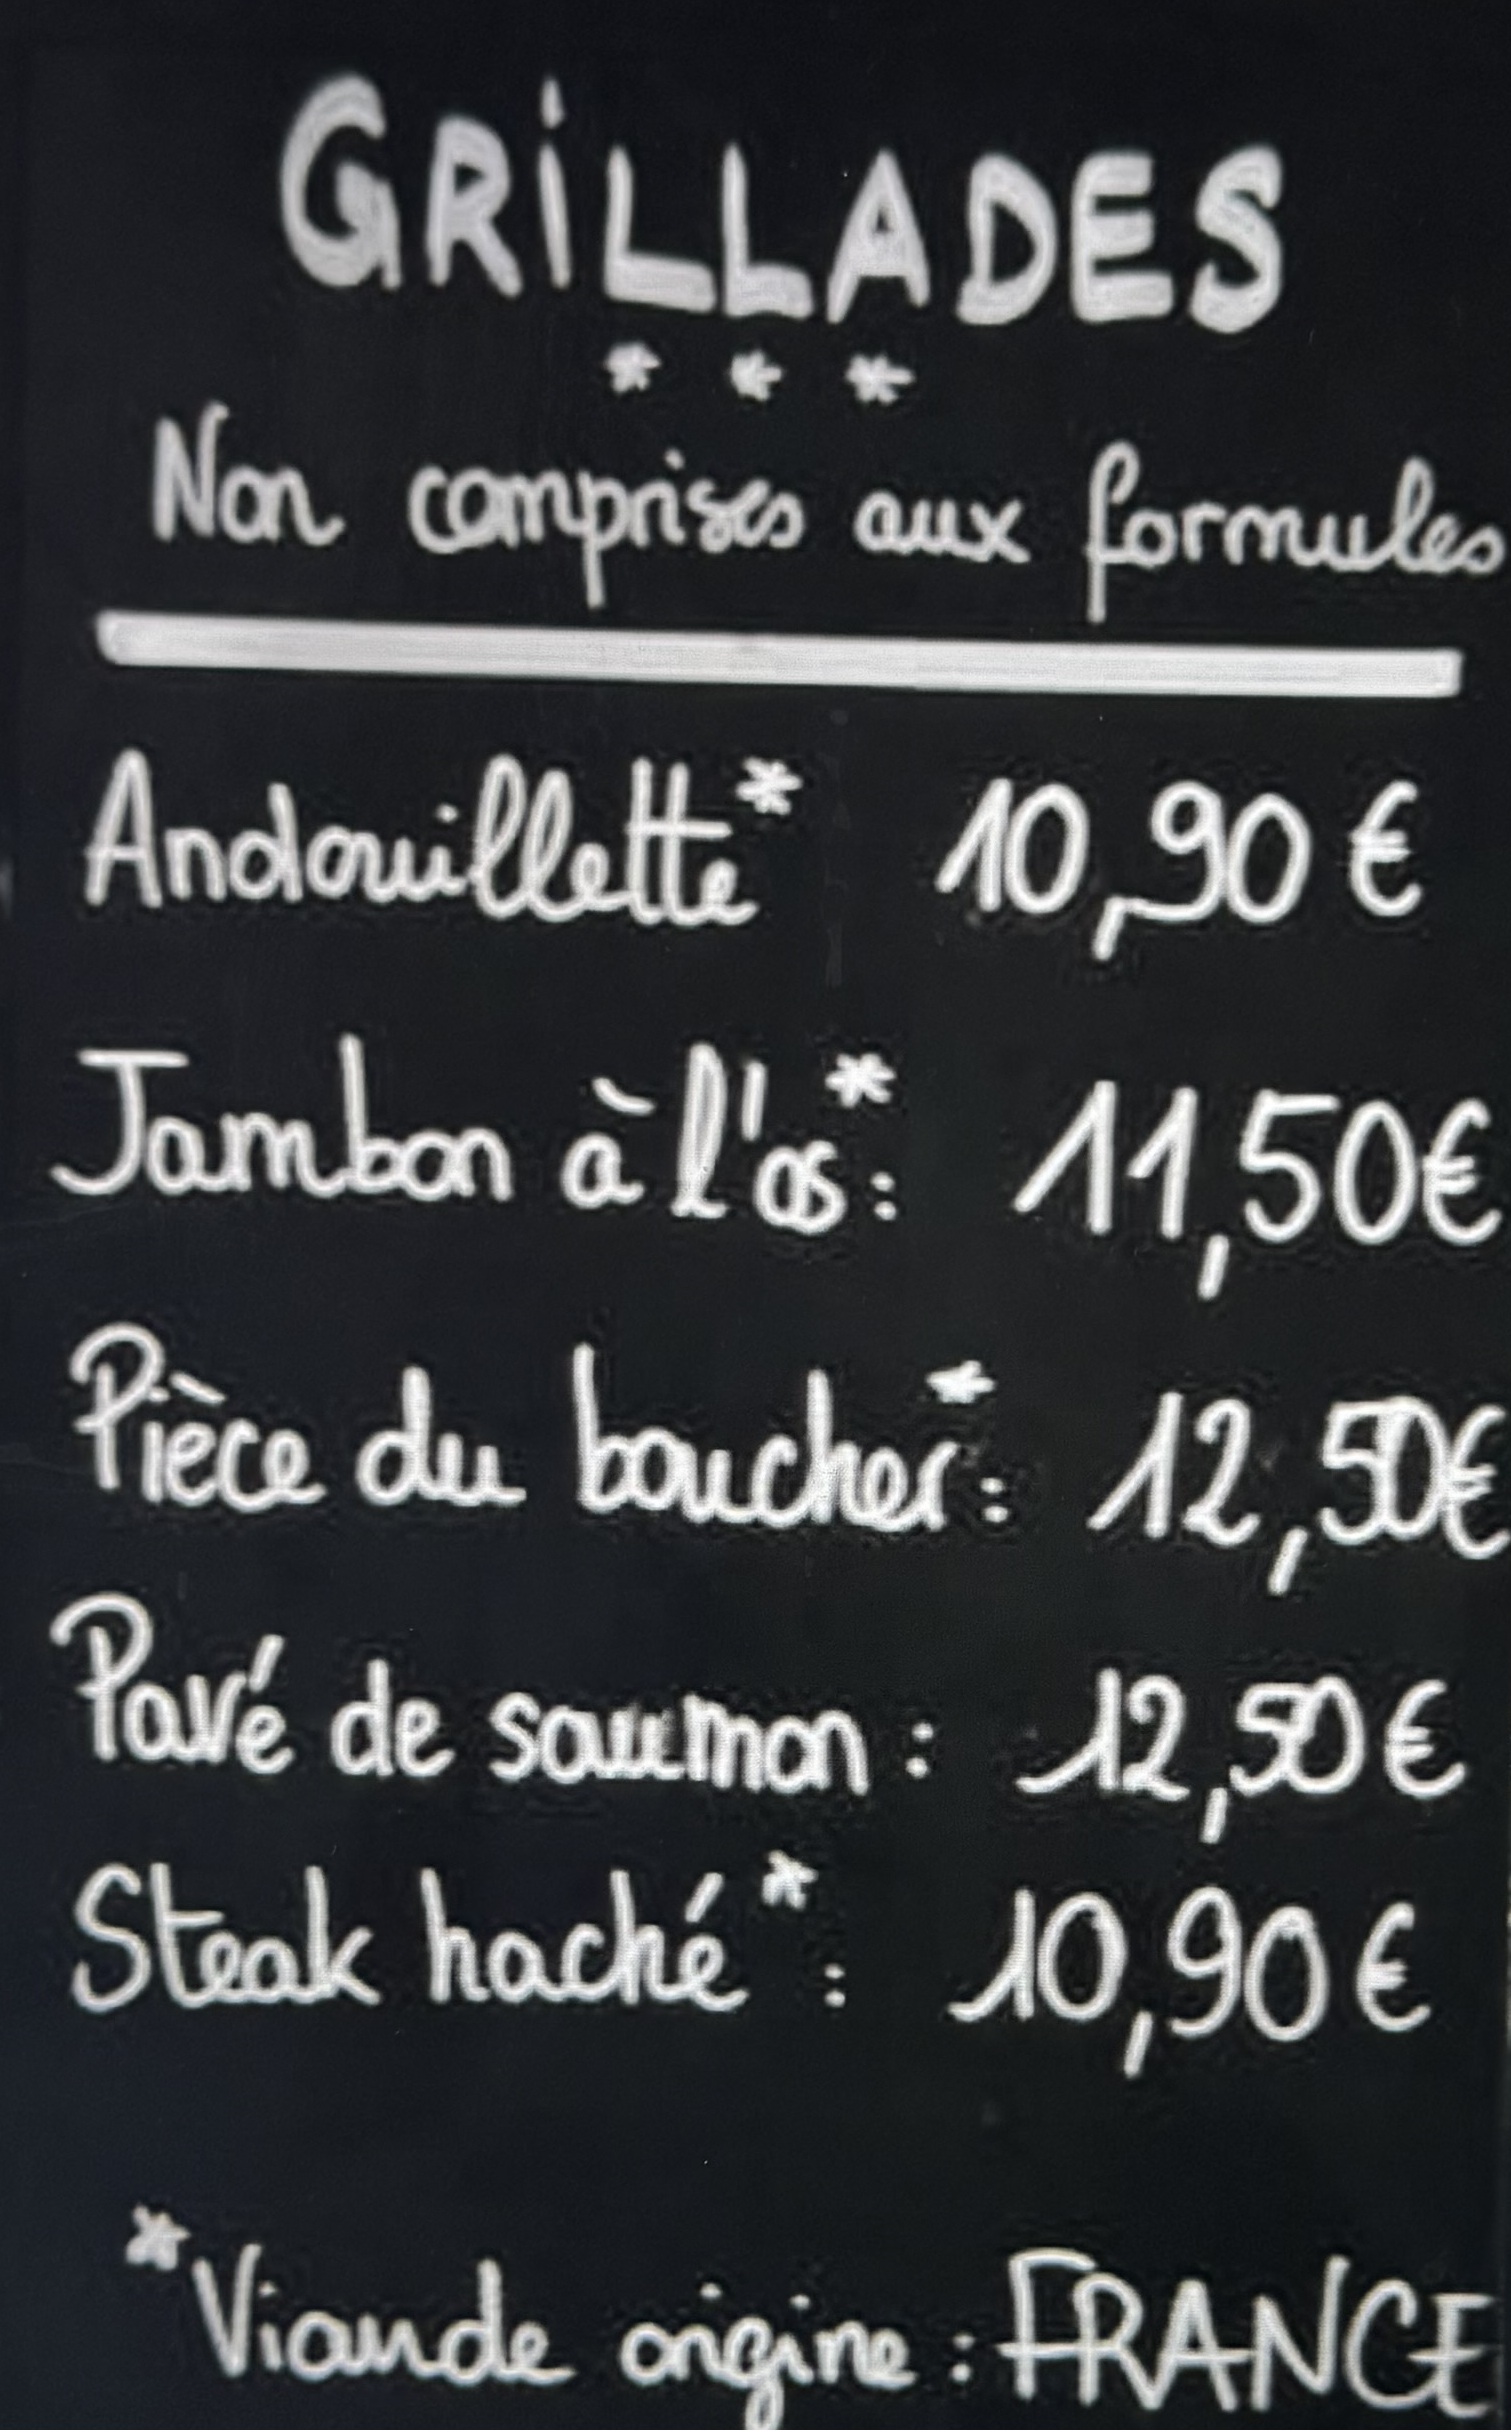 GRiLLADES
* * *
Non comprises aux formules
Andouillette* 10,90 €
Jambon à l'os*: 11,50€
Pièce du boucher*: 12,50€
Pavé de saumon : 12,50 €
Steak haché* : 10,90 €
*Viande origine : FRANCE